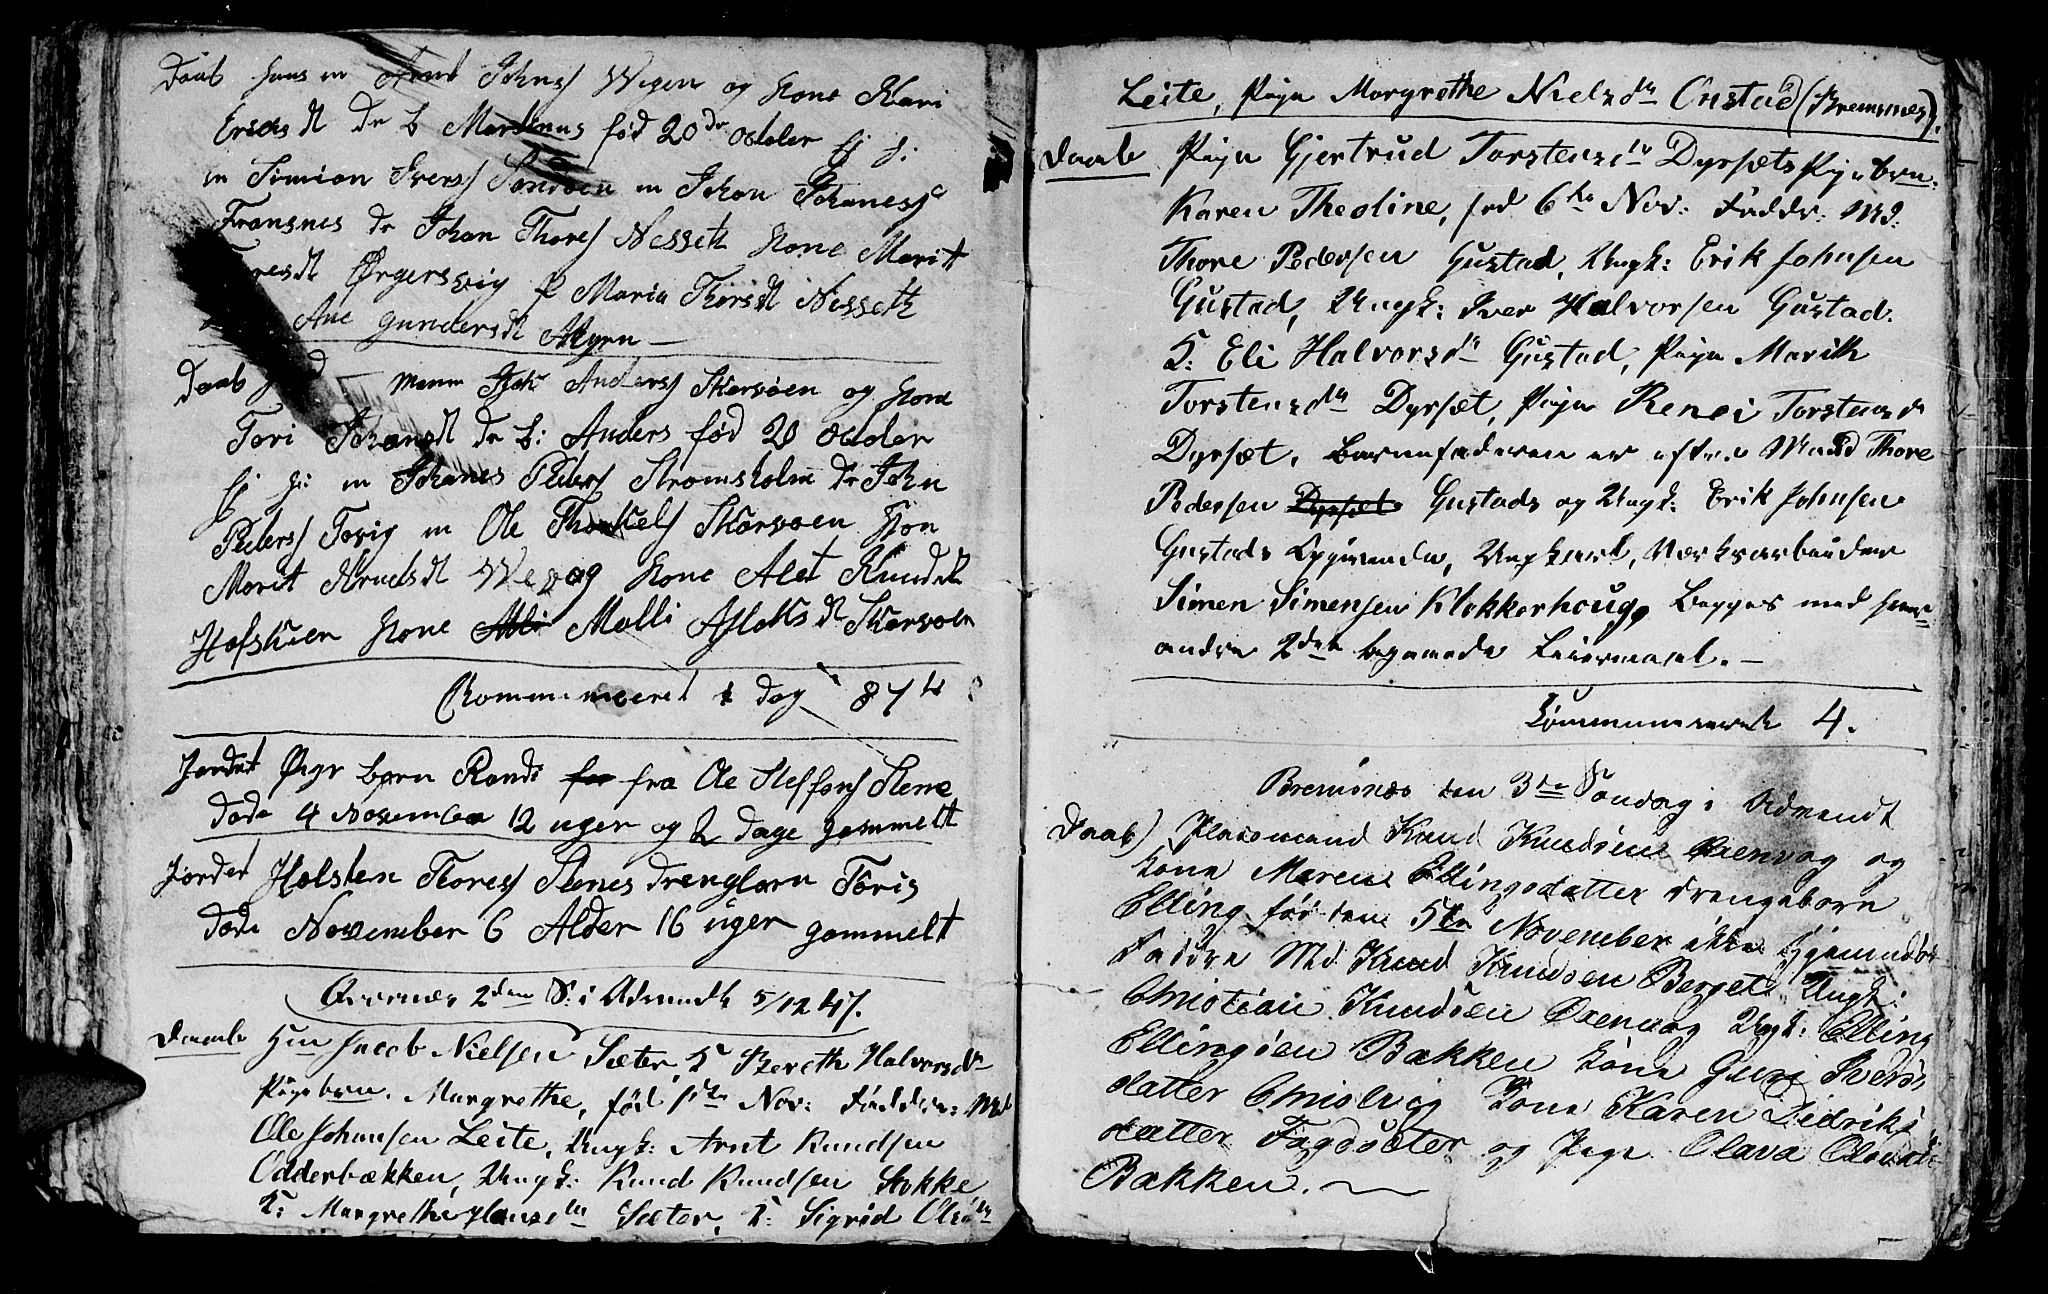 Daab huus m Arnt Johns Wegen og Kone Kari
Ersdt dr b Martinus fød 20de october Ej H:
m Simion Ivers Sandøen m Johan Johaness
Fransnes dr Johan Thores Nesseth Kone Marit
Øygersvig p Maria Thorsdt Nesseth
Ane gundersdt Myren —
Daab — Mann Anders Skarvøen og Kone
Tori Johansdt dr b: Anders fød 20 october
Ej H: m Johanes Peders Stromsholm dr John
Peders Torvig m Ole Skarvøen Kon
Marit Arnetsdt Wevog Kone Alet Knudsdt
Kone Malli Aslaksdt Skarvøen
Kommuniceret i dag 874
Jordet Pige barn Randi fra Ole Steffens Stene
døde 4 November 12 uger og 2 dage gammelt
Jordet Holsten Thores Stenes drengbarn Toris
døde November 6 Alder 16 uger gammelt
Qvernæs 2den S: i Advendt 5/12 47.
Daab Hm Jacob Nielsen Sæter, K Bereth Halvorsdr
Pigebrn. Margrethe, fød Nov: Faddere: Md
Ole Johansen Leite, Ungk: Arnt Knudsen
Odderbækken, Ungk: Knud Knudsen Stokke
K: Margrethe Hansdtr Sæter, K: Sigrid Olsdtr
Leite, Pige Margrethe Nielsdtr Onstad (Bremsnes).
Daab Pige Gjertrud Torstensdtr Dyrsæts Pigebrn.
Karen Theoline, fød 6te Nov: Faddr: Md:
Thore Pedersen Gustad, Ungk: Erik Johnsen
Gustad, Ungk: Iver Halvorsen Gustad.
K: Eli Halvorsdtr Gustad, Pige Marith
Torstensdtr Dyrsæt, Pige Renei Torstensdr
Dyrsæt. Barnefaderen er efter Mand Thore
Pedersen Dyrsæt Gustads og Ungk: Erik Johnsen
Gustads Opgivende, Ungkarl, Værksarbeider
Simen Simensen Klokkerhoug, Begges med hver-
andre 2den begaaede Leiermaal. —
Kommunicerede 4.
Bremsnæs den 3die Søndag i Advendt
Daab) Pladsmand Knud Knudsen Øxenvog og
Kone Maren Ellingsdatter drengebarn
Elling fød den 5te November ikke hjemmedøbt
Faddre Md Knud Knudsen Berget Ungk:
Christian Knudsen Øxenvog Ungk: Elling
Ellingsen Bakken Kone Guri Ivers
datter Christvig Kone Karen Didriks
datter Fagsæter og Pige Olava Olsdtr
Bakken. —